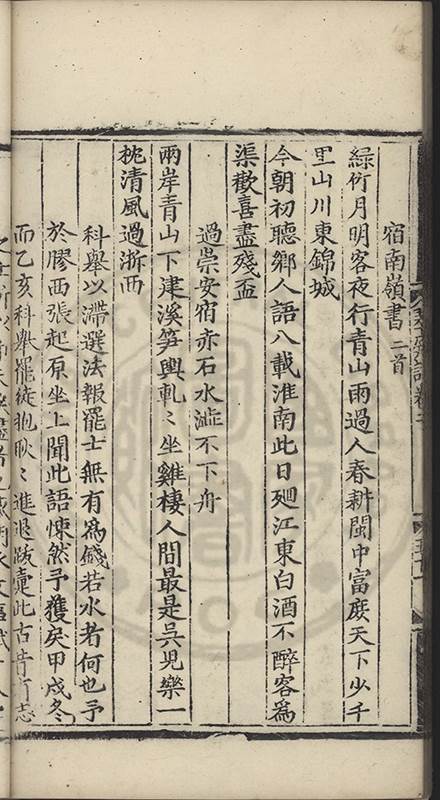 宿南嶺書二首
綠竹月明客夜行青山雨過人春耕閩中富庶天下少千
里山川東錦城
今朝初聽鄉人語八載淮南此日廻江東白酒不醉客為
渠歡喜盡殘盃
過崇安宿赤石水澁不下舟
兩岸青山下建溪笋輿軋〻坐雞棲人間最是吳兒樂一
桃清風過浙西
科舉以滯選法報罷士無有為錢若水者何也予
於膠西張起原坐上聞此語悚然予獲矣甲戍冬
而乙亥科舉罷徒抱耿〻進退